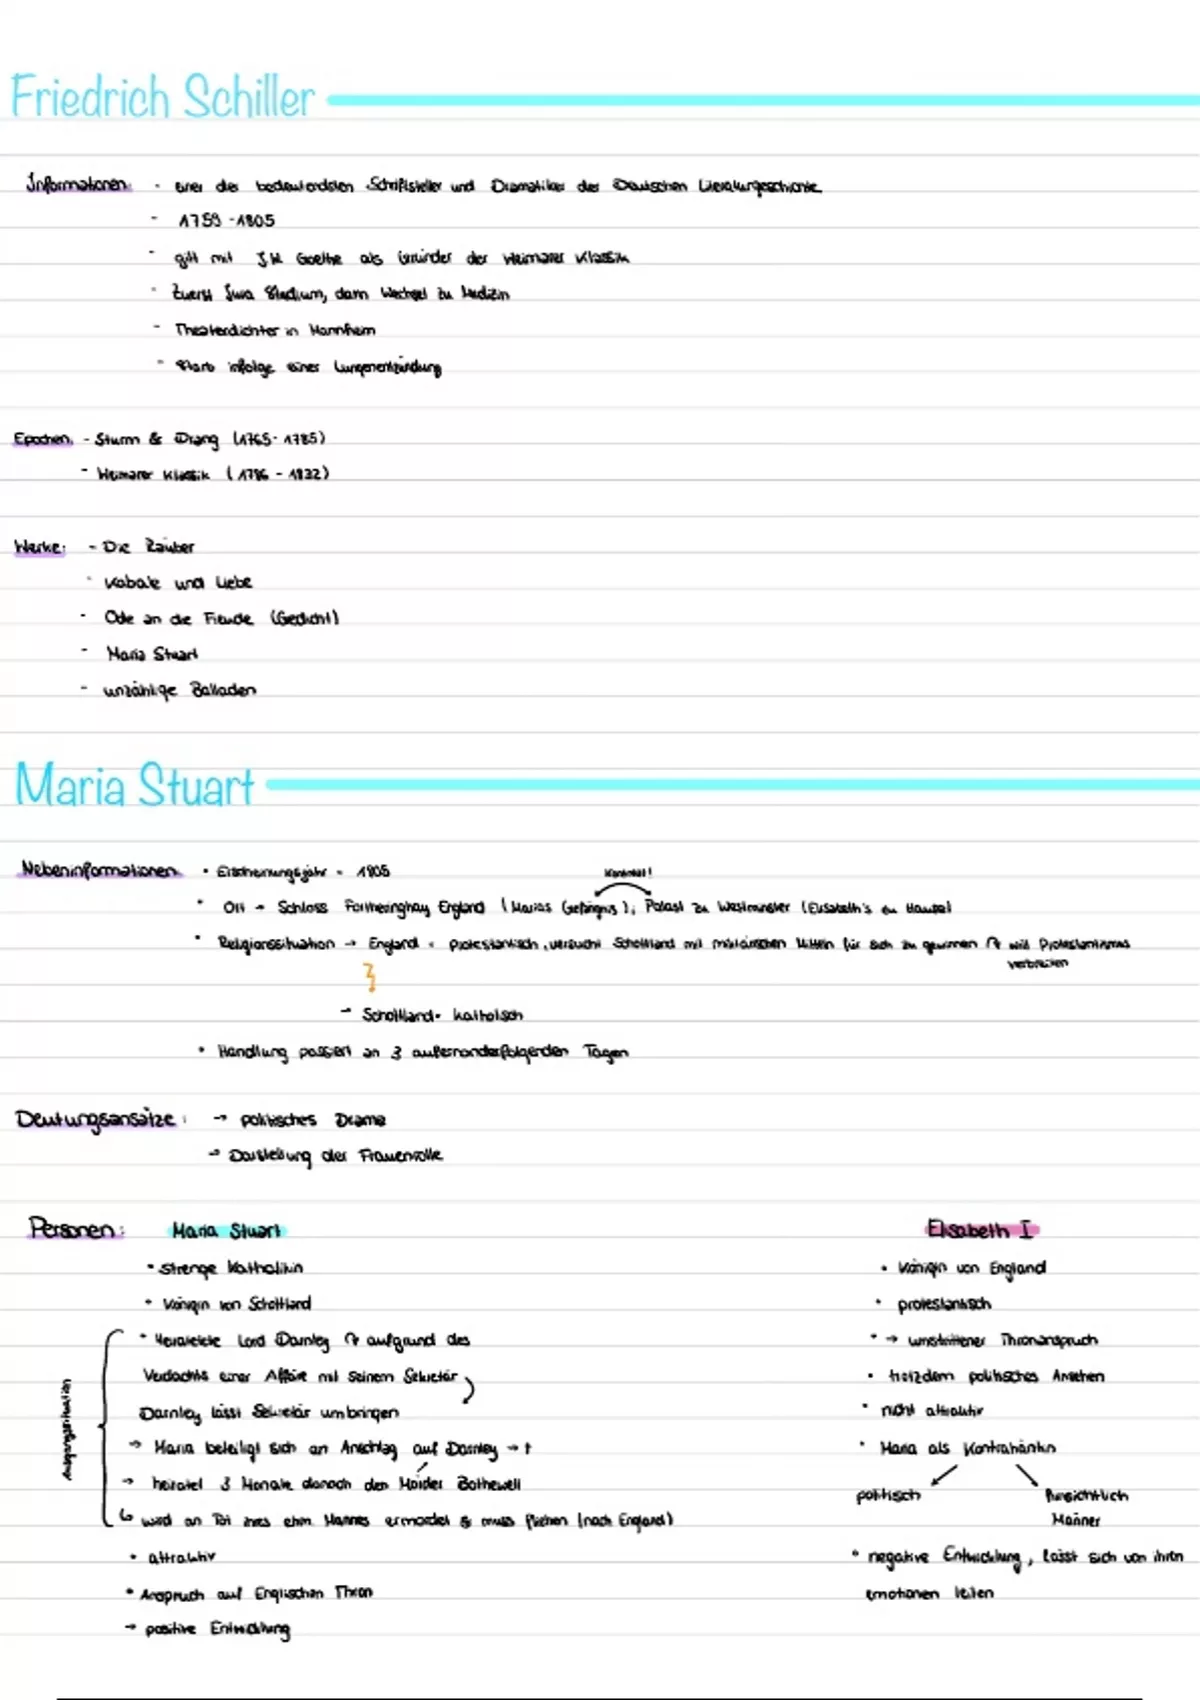 Friedrich Schiller
Informationen: - einer der bedeutendsten Schriftsteller und Dramatiker der Deutschen Literaturgeschichte
- 1759 - 1805
- gilt mit J.W. Goethe als Gründer der Weimarer Klassik
- Zuerst Jura Studium, dann Wechsel zu Medizin
- Theaterdichter in Mannheim
- Starb infolge einer Lungenentzündung
Epochen: - Sturm & Drang (1765 - 1785)
- Weimarer Klassik (1786 - 1832)
Werke: - Die Räuber
- Kabale und Liebe
- Ode an die Freude (Gedicht)
- Maria Stuart
- unzählige Balladen
Maria Stuart
Nebeninformationen • Erscheinungsjahr - 1805
Kontrast!
• Ort → Schloss Fortheringhay England (Marias Gefängnis); Palast zu Westminster (Elisabeth's zu Hause)
• Religionssituation → England - protestantisch, versucht Schottland mit militärischen Mitteln für sich zu gewinnen will Protestantismus
verbreiten
→ Schottland - katholisch
• Handlung passiert an 3 aufeinanderfolgenden Tagen
Deutungsansätze: → politisches Drama
→ Darstellung der Frauenrolle
Personen: Maria Stuart
• strenge Katholikin
• Königin von Schottland
Ausgangssituation
• Heiratete Lord Darnley aufgrund des
Verdachts einer Affäre mit seinem Sekretär
Darnley lässt Sekretär umbringen
→ Maria beteiligt sich an Anschlag auf Darnley → †
→ heiratet 3 Monate danach den Mörder Bothewell
↳ wird an Tot ihres ehm. Mannes ermordet & muss fliehen (nach England)
• attraktiv
• Anspruch auf Englischen Thron
→ positive Entwicklung
Elisabeth I
• Königin von England
• protestantisch
• → umstrittener Thronanspruch
• trotzdem politisches Ansehen
• nicht attraktiv
• Maria als Kontrahäntin
politisch hinsichtlich
Männer
• negative Entwicklung, lässt sich von ihren
emotionen leiten